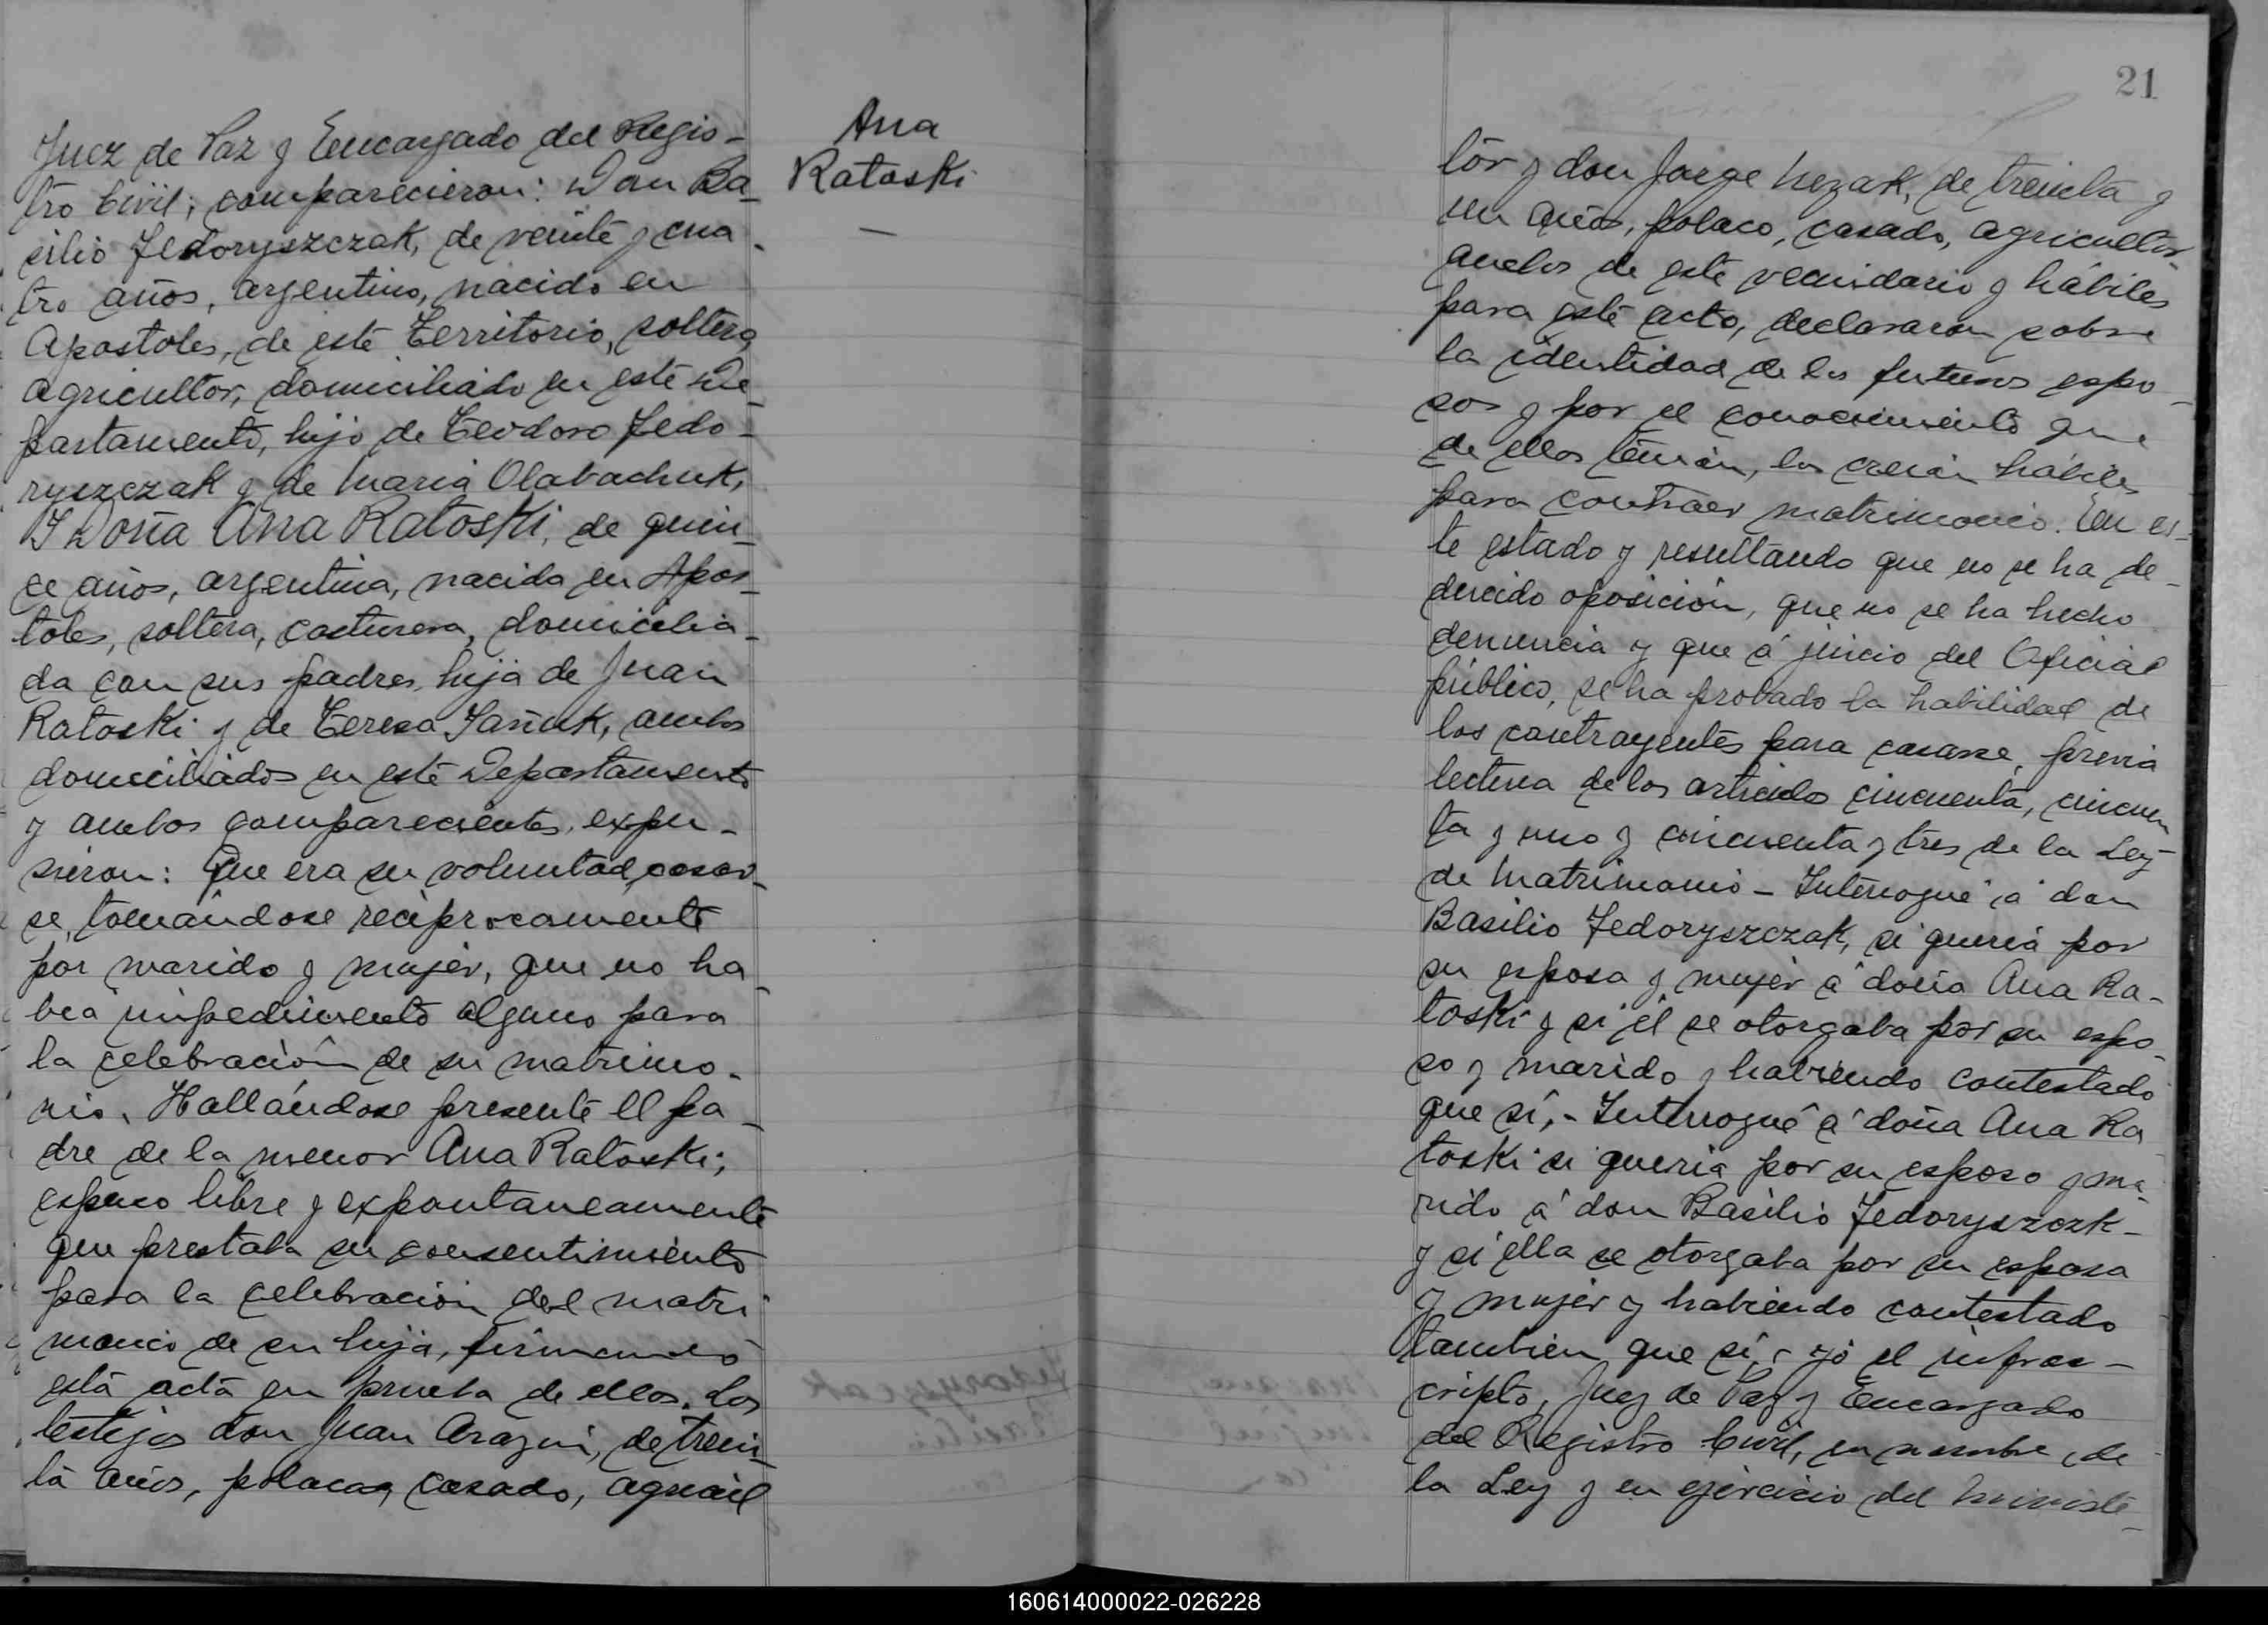 Juez de Paz y Encargado del Regis-
tro Civil; comparecieron: Don Ba-
silio Fedoryszczak, de veinte y cua-
tro años, argentino, nacido en
Apostoles, de este Territorio, soltero,
agricultor, domiciliado en este De-
partamento, hijo de Teodoro Fedo-
ryszczak y de Maria Olabachuk,
Y Doña Ana Ratoski, de quin-
ce años, argentina, nacida en Apos-
toles, soltera, costurera, domicilia-
da con sus padres, hija de Juan
Ratoski y de Teresa Yañuk, ambos
domiciliados en este Departamento
y ambos comparecientes, expu-
sieron: Que era su voluntad casar-
se, tomándose reciprocamente
por marido y mujer, que no ha-
bia impedimento alguno para
la celebración de su matrimo-
nio. Hallándose presente el pa-
dre de la menor Ana Ratoski;
espuso libre y expontaneamente
que prestaba su consentimiento
para la celebración del matri
monio de su hija, firmando
esta acta en prueba de ellos. Los
testigos don Juan, de trein-
ta años, casado, agricul
Ana
Ratoski
21
tor y don Jorge, de treinta y
un años, polaco, casado, agricultor
ambos de este vecindario y hábiles
para este acto, declararon sobre
la identidad de los futuros espo-
sos y por el conocimiento que
de ellos tenian, los creian hábiles
para contraer matrimonio. En es-
te estado y resultando que no se ha de-
ducido oposición, que no se ha hecho
denuncia y que á juicio del Oficial
público, se ha probado la habilidad de
los contrayentes para casarse, previa
lectura de los articulos cincuenta, cincuen
ta y uno y cincuenta y tres de la Ley
de Matrimonio - Interrogué á don
Basilio Fedoryszczak, si queria por
su esposa y mujer á doña Ana Ra-
toski y si él se otorgaba por su espo-
so y marido y habiendo contestado
que sí, - Interrogué á doña Ana Ra
toski si queria por su esposo y ma-
rido á don Basilio Fedoryszczk-
y si ella se otorgaba por su esposa
y mujer y habiendo contestado
tambien que sí, yó el infras-
cripto, Juez de Paz y Encargado
del Registro Civil, en nombre de
la Ley y en ejercicio del ministe-
160614000022-026228